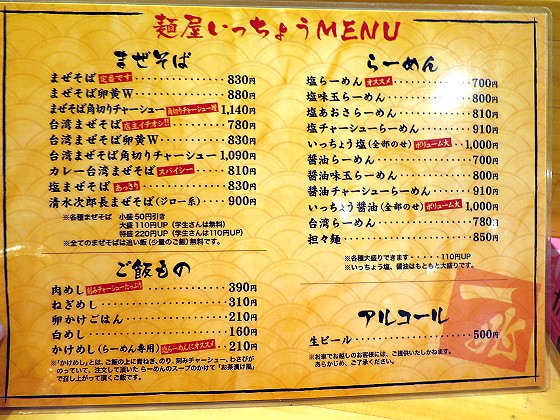 麺屋いっちょうMENU
まぜそば
まぜそば 定番です 830円
まぜそば卵黄W 880円
まぜそば角切りチャーシュー 角切りチャーシュー増 1,140円
台湾まぜそば 店主イチオシ!! 780円
台湾まぜそば卵黄W 830円
台湾まぜそば角切りチャーシュー 1,090円
カレー台湾まぜそば スパイシー 810円
塩まぜそば あっさり 830円
清水次郎長まぜそば(ジロー系) 900円
※各種まぜそば 小盛 50円引き
大盛 110円UP (学生さんは無料)
特盛 220円UP (学生さんは110円UP)
※全てのまぜそばは追い飯 (少量のご飯) 無料です。
ご飯もの
肉めし 刻みチャーシューたっぷり 390円
ねぎめし 310円
卵かけごはん 210円
白めし 160円
かけめし(らーめん専用) 塩らーめんにオススメ 210円
※「かけめし」とは、ご飯の上に青ねぎ、のり、刻みチャーシュー、わさび
がのっていて、注文して頂いた らーめんのスープのかけて「お茶漬け風」
で召し上がって頂くご飯です。
らーめん
塩らーめん オススメ 700円
塩味玉らーめん 800円
塩あおさらーめん 810円
塩チャーシューらーめん 910円
いっちょう塩(全部のせ) ボリューム大 1,000円
醤油らーめん 700円
醤油味玉らーめん 800円
醤油チャーシューらーめん 910円
いっちょう醤油(全部のせ) ボリューム大 1,000円
台湾らーめん 780円
担々麺 850円
※各種大盛りできます 110円UP
※いっちょう塩、醤油はもともと大盛りです。
アルコール
生ビール 500円
※お車でお越しのお客様には、ご提供いたしかねます。
あらかじめ、ご了承ください。